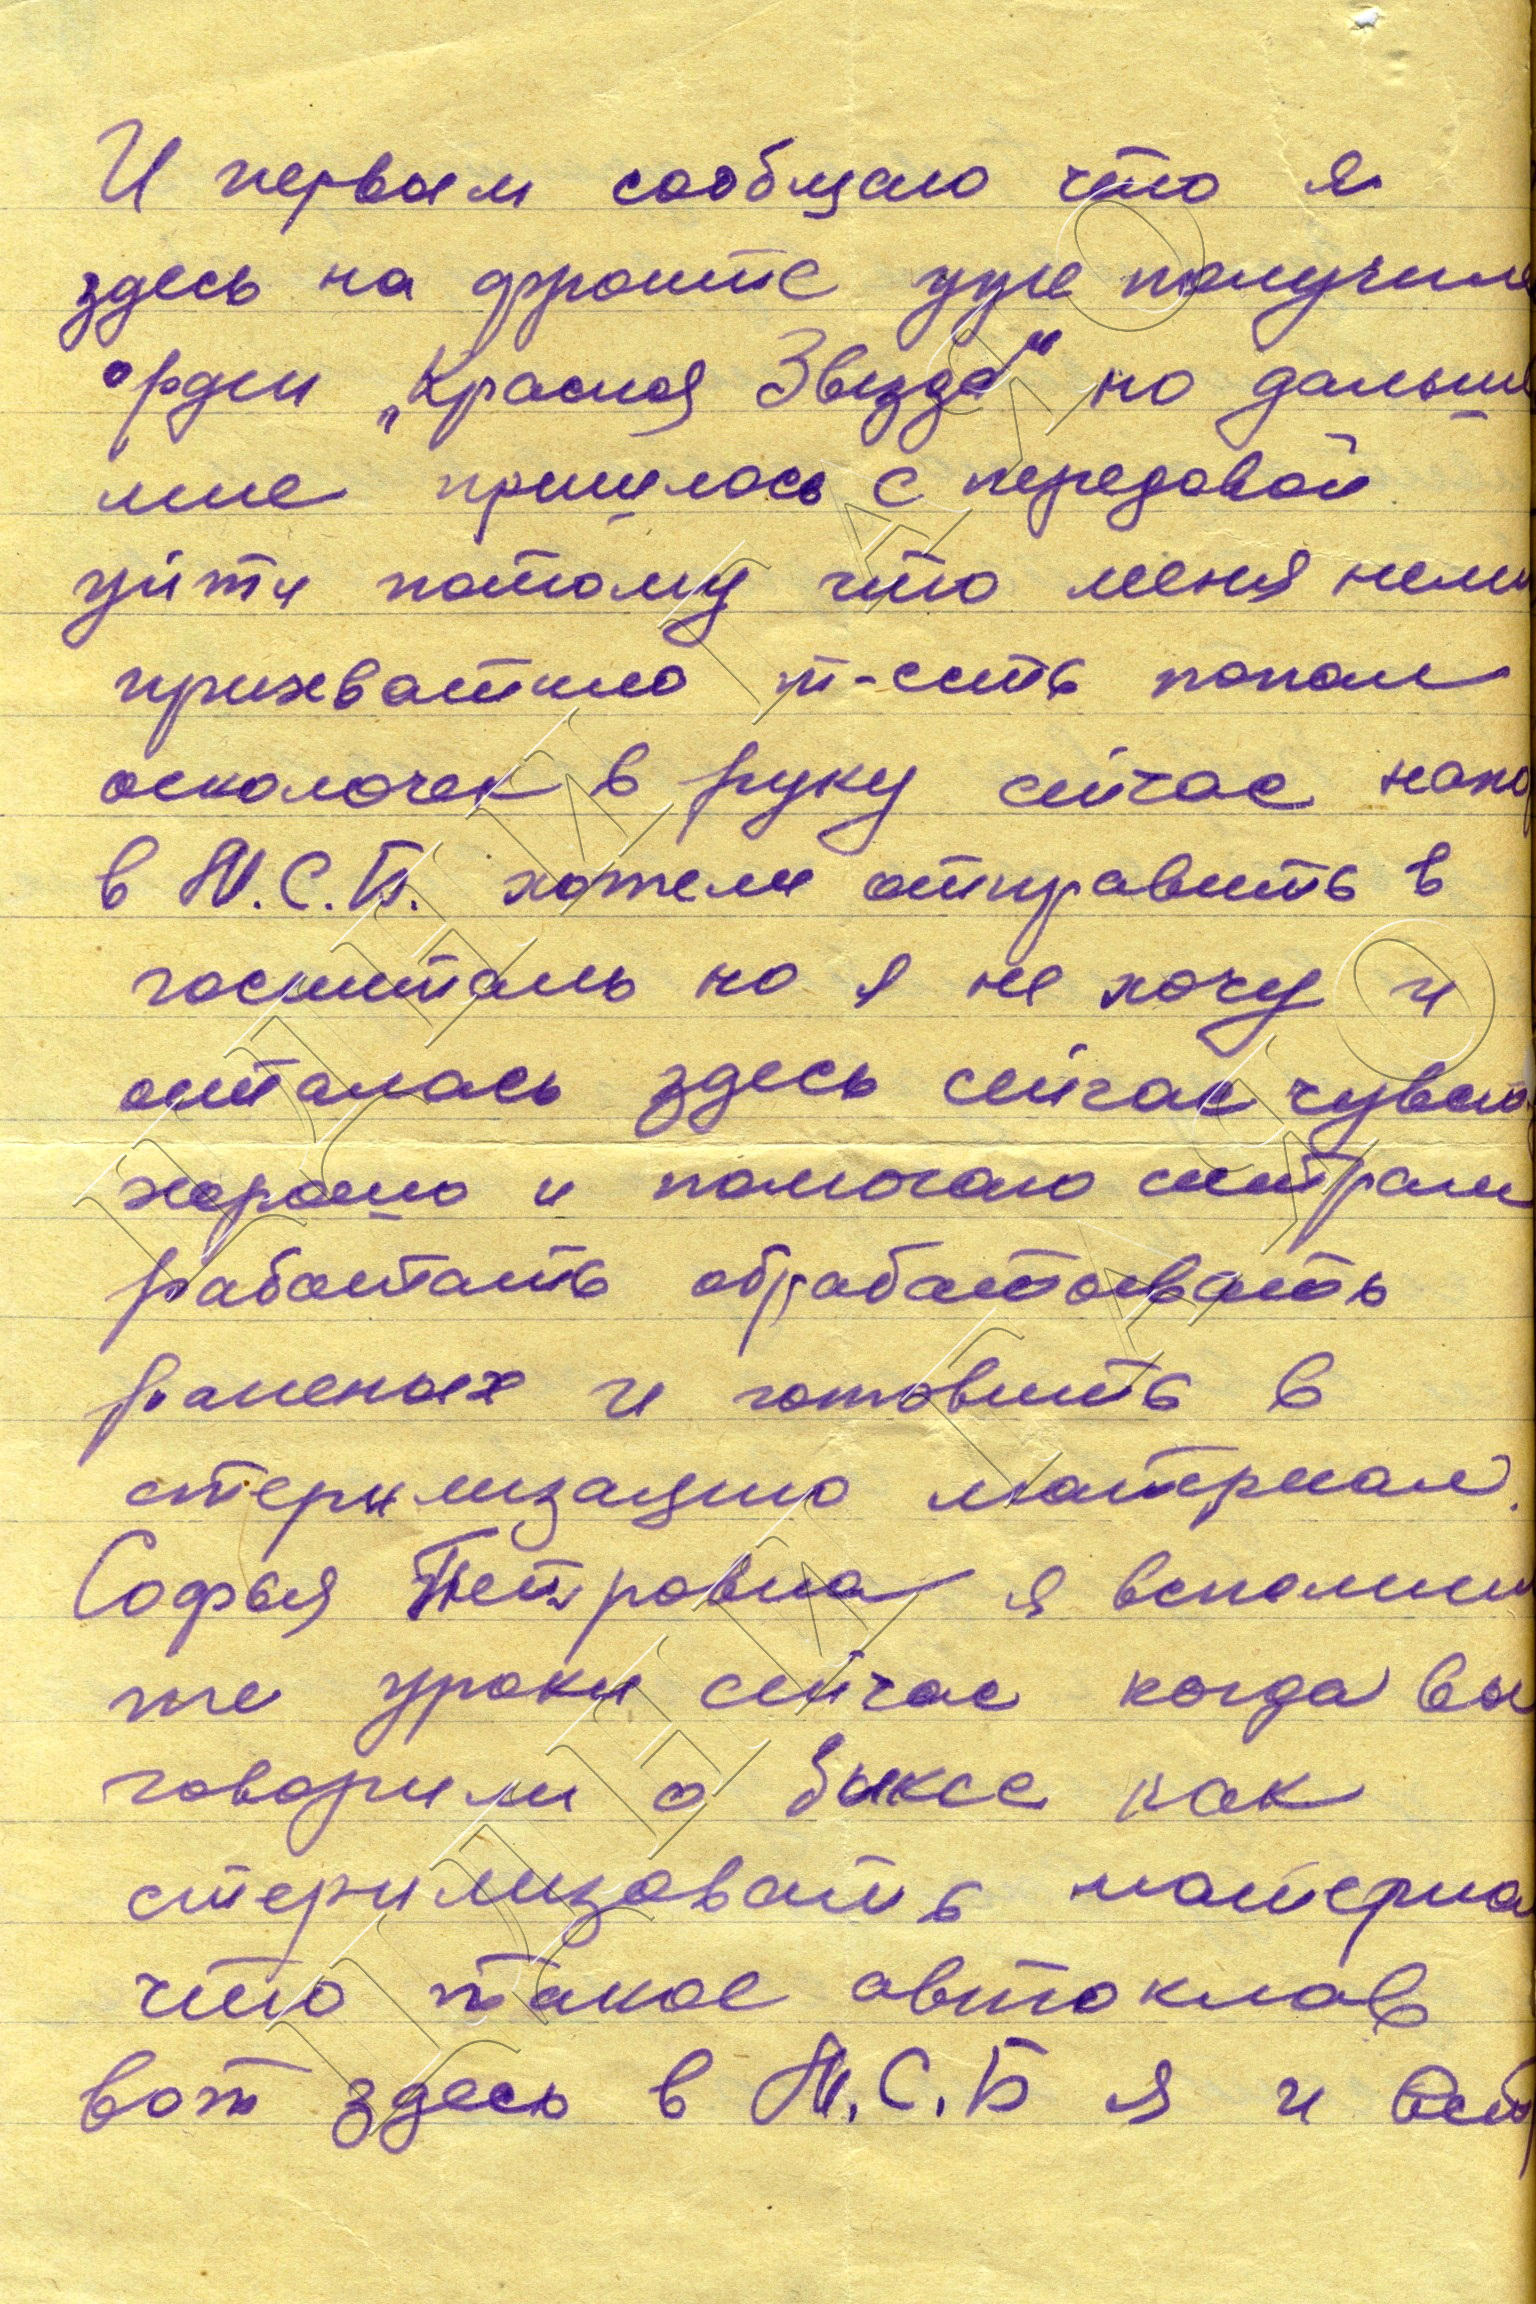 И первым сообщаю что я
здесь на фронте уже получил
орден „Красная Звезда" но дальше
мне пришлось с передовой
уйти потому что меня нем
прихватило т-есть попал
осколочек в руку сейчас нахо
в М.С.Б. хотели отправить в
госпиталь но я не хочу и
осталась здесь сейчас чувст
хорошо и помогаю сестрам
работать обрабатывать
раненых и готовить в
стерилизацию материал.
Софья Петровна я вспомни
те уроки сейчас когда вы
говорили о биксе как
стерилизовать материа
что такое автоклав
вот здесь в М.С.Б я и